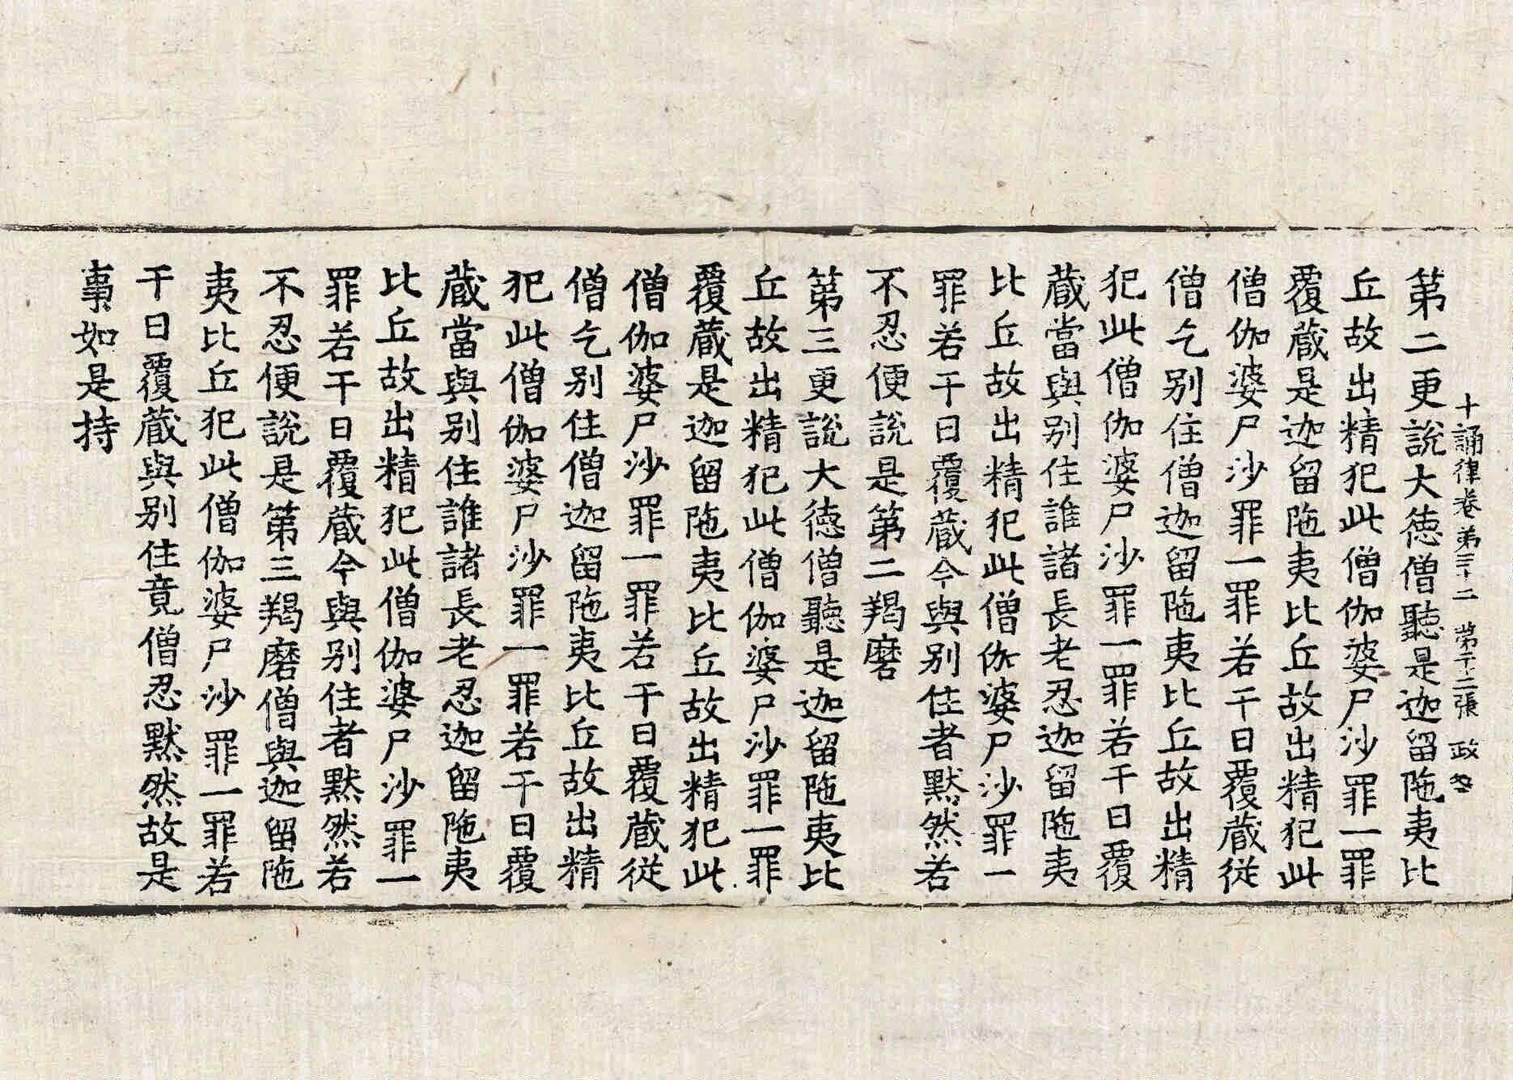 十誦律卷第三十二 第十三張 政
第二更說大德僧聽是迦留陁夷比
丘故出精犯此僧伽婆尸沙罪一罪
覆藏是迦留陁夷比丘故出精犯此
僧伽婆尸沙罪一罪若干日覆藏從
僧乞別住僧迦留陁夷比丘故出精
犯此僧伽婆尸沙罪一罪若干日覆
藏當與別住誰諸長老忍迦留陁夷
比丘故出精犯此僧伽婆尸沙罪一
罪若干日覆藏今與別住者默然若
不忍便說是第二羯磨
第三更說大德僧聽是迦留陁夷比
丘故出精犯此僧伽婆尸沙罪一罪
覆藏是迦留陁夷比丘故出精犯此
僧伽婆尸沙罪一罪若干日覆藏從
僧乞別住僧迦留陁夷比丘故出精
犯此僧伽婆尸沙罪一罪若干日覆
藏當與別住誰諸長老忍迦留陁夷
比丘故出精犯此僧伽婆尸沙罪一
罪若干日覆藏今與別住者默然若
不忍便說是第三羯磨僧與迦留陁
夷比丘犯此僧伽婆尸沙罪一罪若
干日覆藏與別住竟僧忍默然故是
事如是持